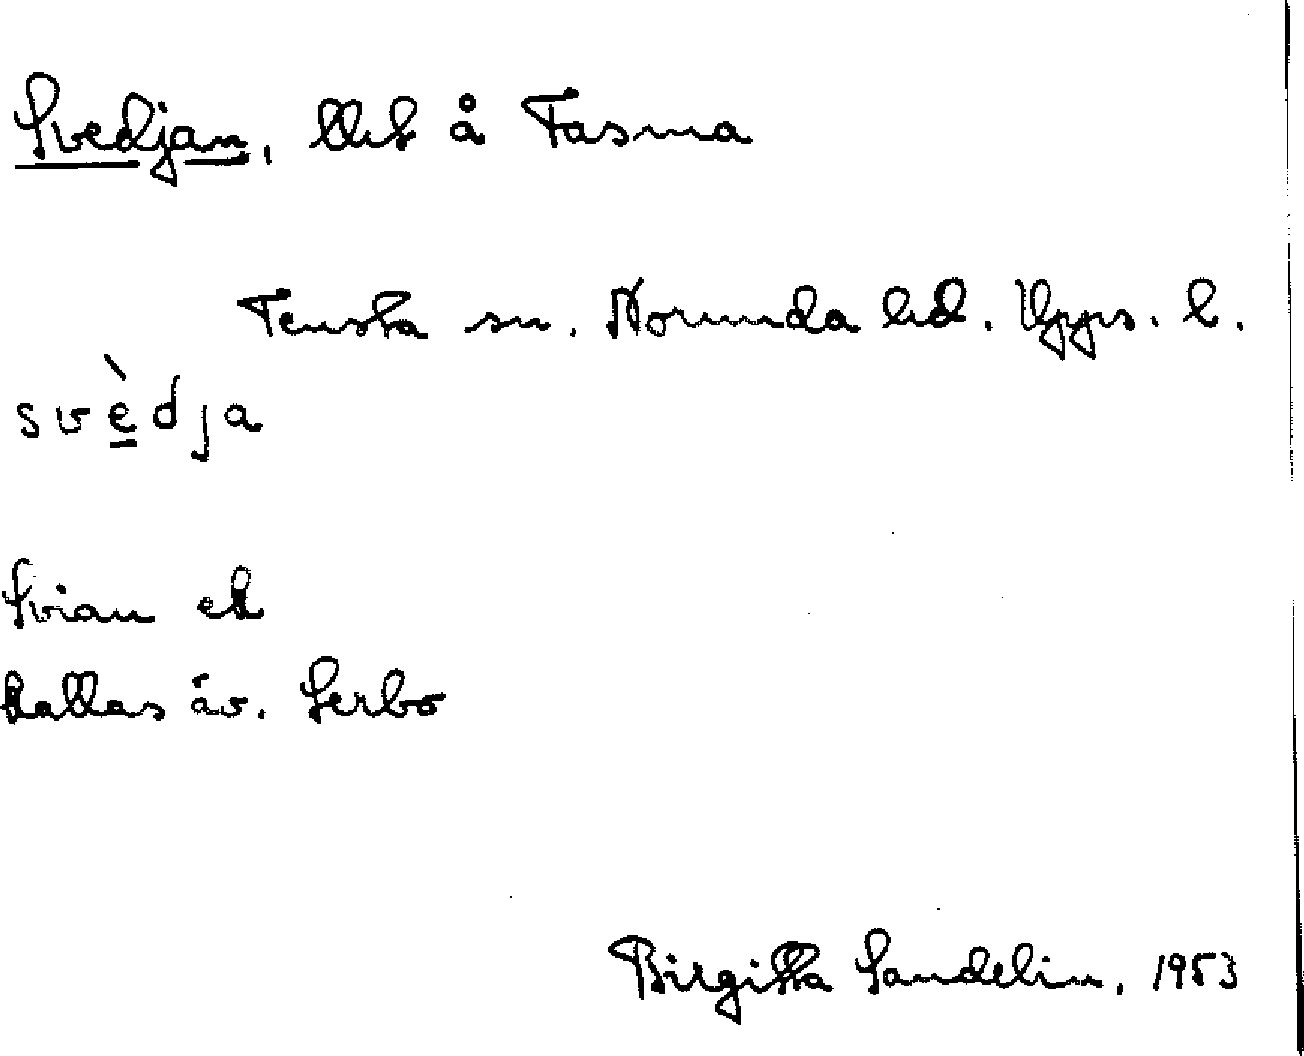 Svedjan, llht å Fasma
Tensta sn. Norunda hd. Upps. l.
svèdja
Svian ek
kallas äv. Serbo
Birgitta Sandelin, 1953